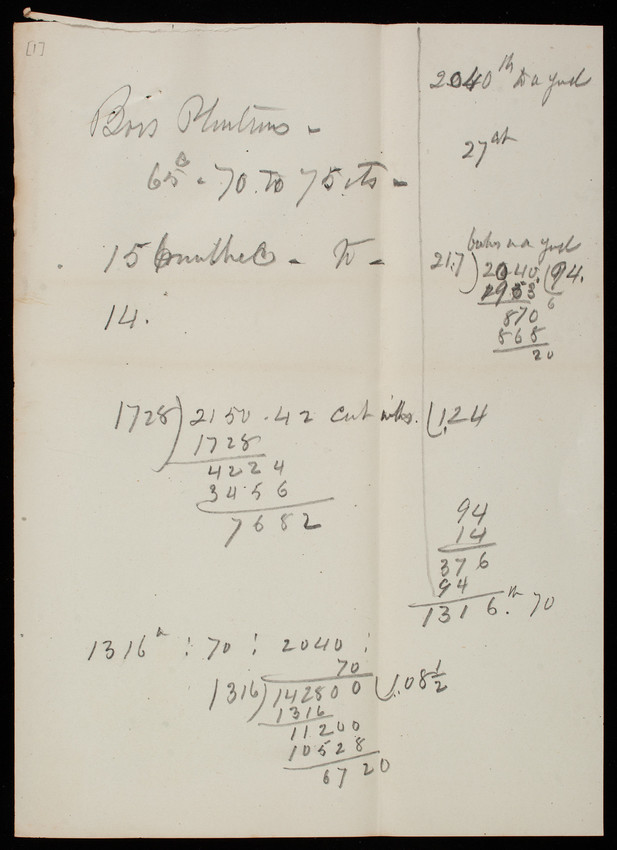 [1]
2040 lb to a yard
27
65 - 70 to 75 cts -
15 - to -
14.
a yard
21.7) 2040. (94.
1953 6
870
868
20
1728) 2150.42 (1.24
1728
4224
3456
7682
94
14
376
94
1316. lb 70
1316 : 70 : 2040 :
70
1316) 142800 (1.08 1/2
1316
11200
10528
6720